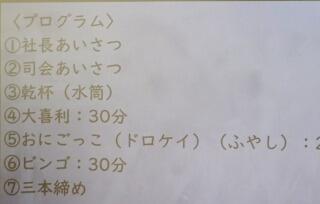 〈プログラム〉
①社長あいさつ
②司会あいさつ
③乾杯（水筒）
④大喜利：30分
⑤おにごっこ（ドロケイ）（ふやし）：2
⑥ビンゴ：30分
⑦三本締め